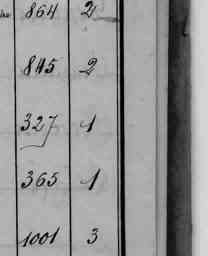 864 2
845 2
327 1
365 1
1001 3